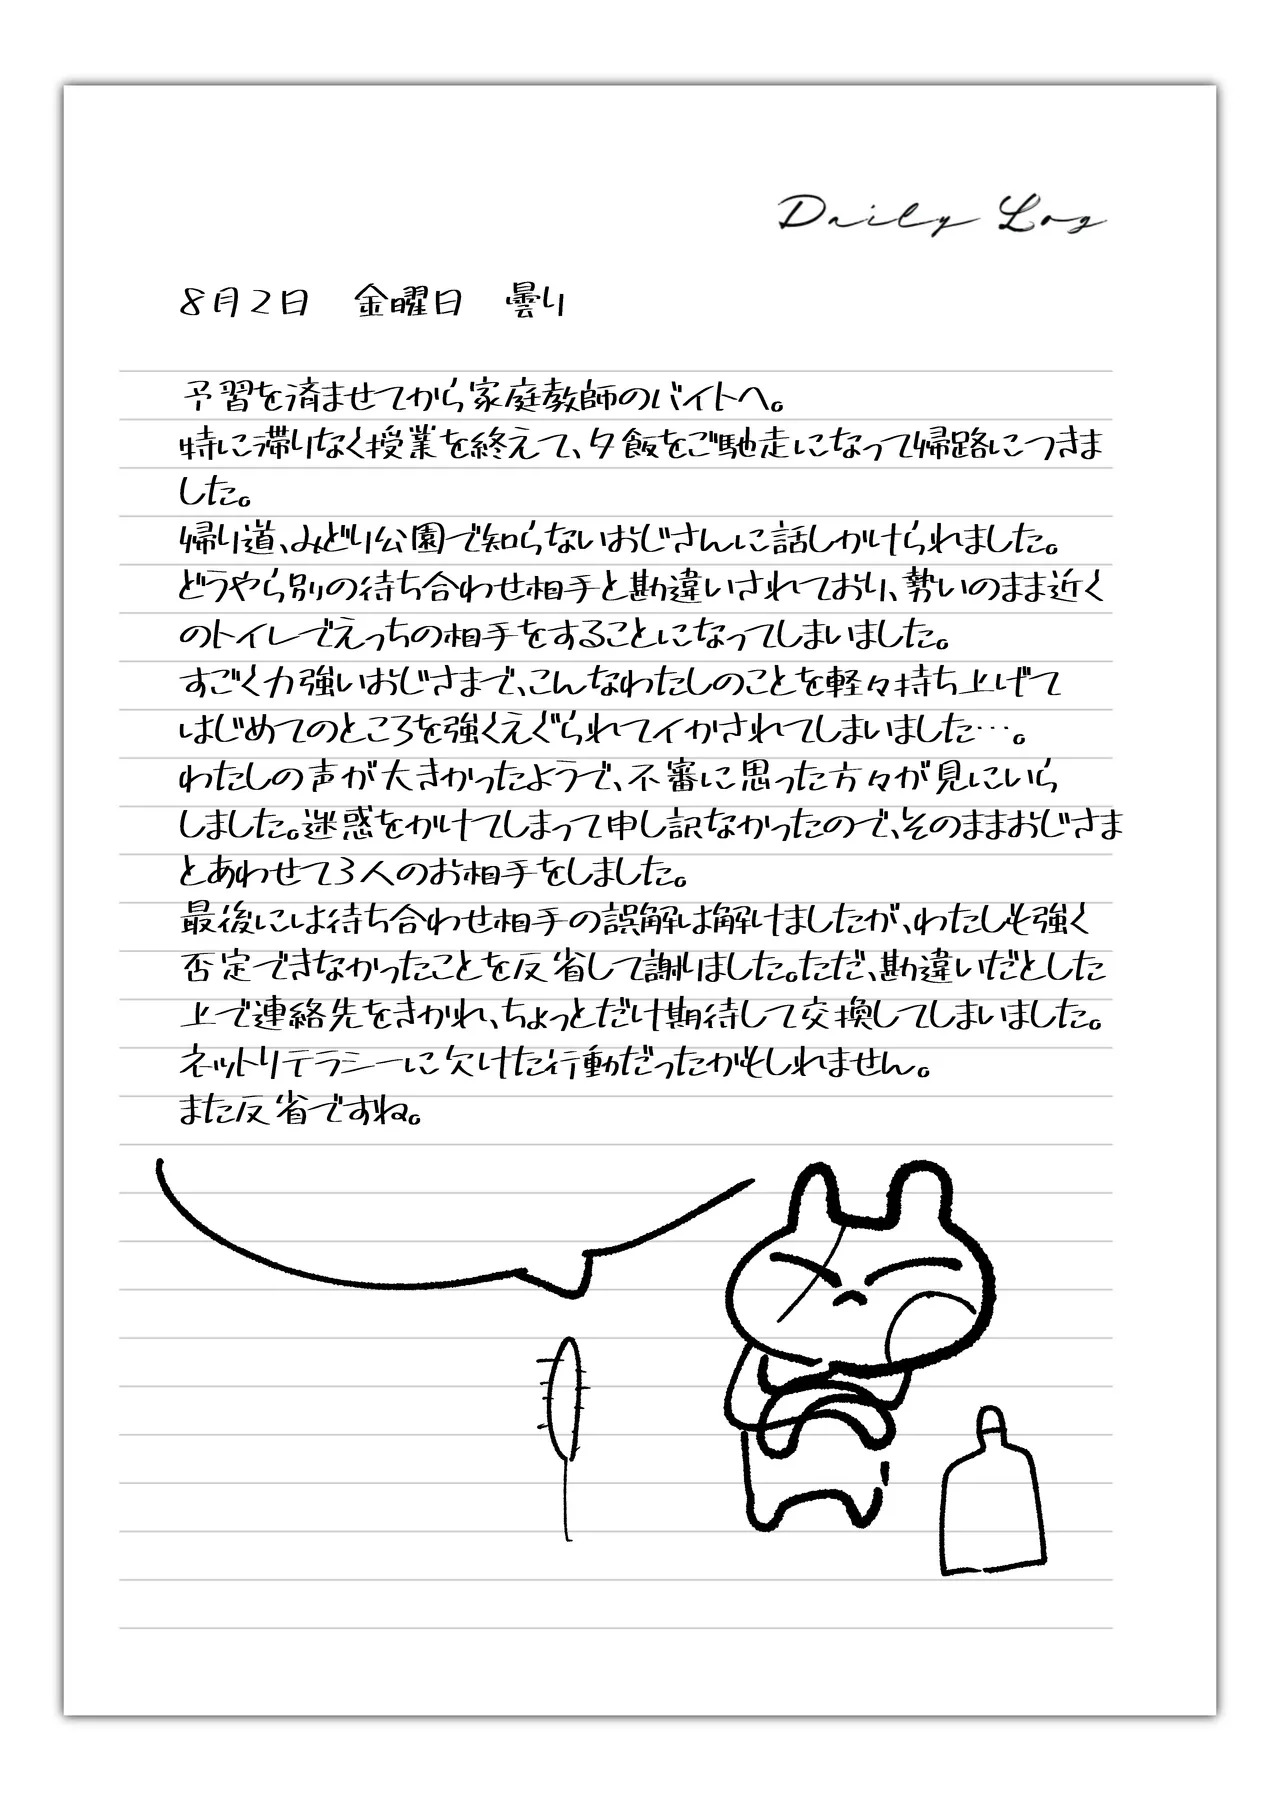 Daily Log
8月2日　金曜日　曇り
予習を済ませてから家庭教師のバイトへ。
特に滞りなく授業を終えて、夕飯をご馳走になって帰路につきま
した。
帰り道、みどり公園で知らないおじさんに話しかけられました。
どうやら別の待ち合わせ相手と勘違いされており、勢いのまま近く
のトイレでえっちの相手をすることになってしまいました。
すごく力強いおじさまで、こんなわたしのことを軽々持ち上げて
はじめてのところを強くえぐられてイかされてしまいました…。
わたしの声が大きかったようで、不審に思った方々が見にいら
しました。迷惑をかけてしまって申し訳なかったので、そのままおじさま
とあわせて3人のお相手をしました。
最後には待ち合わせ相手の誤解は解けましたが、わたしも強く
否定できなかったことを反省して謝りました。ただ、勘違いだとした
上で連絡先をきかれ、ちょっとだけ期待して交換してしまいました。
ネットリテラシーに欠けた行動だったかもしれません。
また反省ですね。